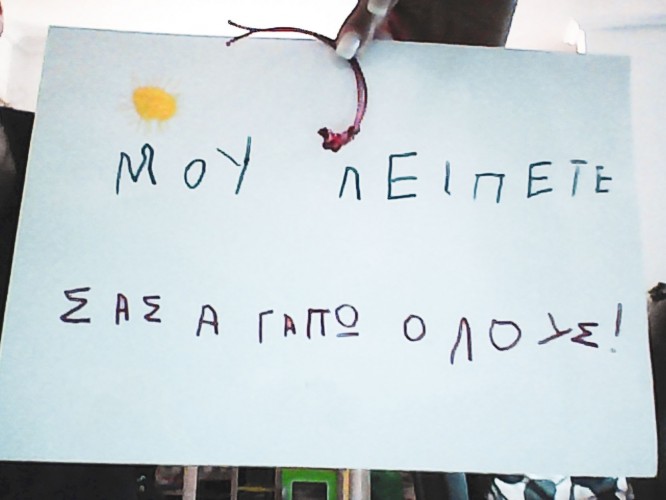 ΜΟΥ ΛΕΙΠΕΤΕ
ΣΑΣ ΑΓΑΠΩ ΟΛΟΥΣ!